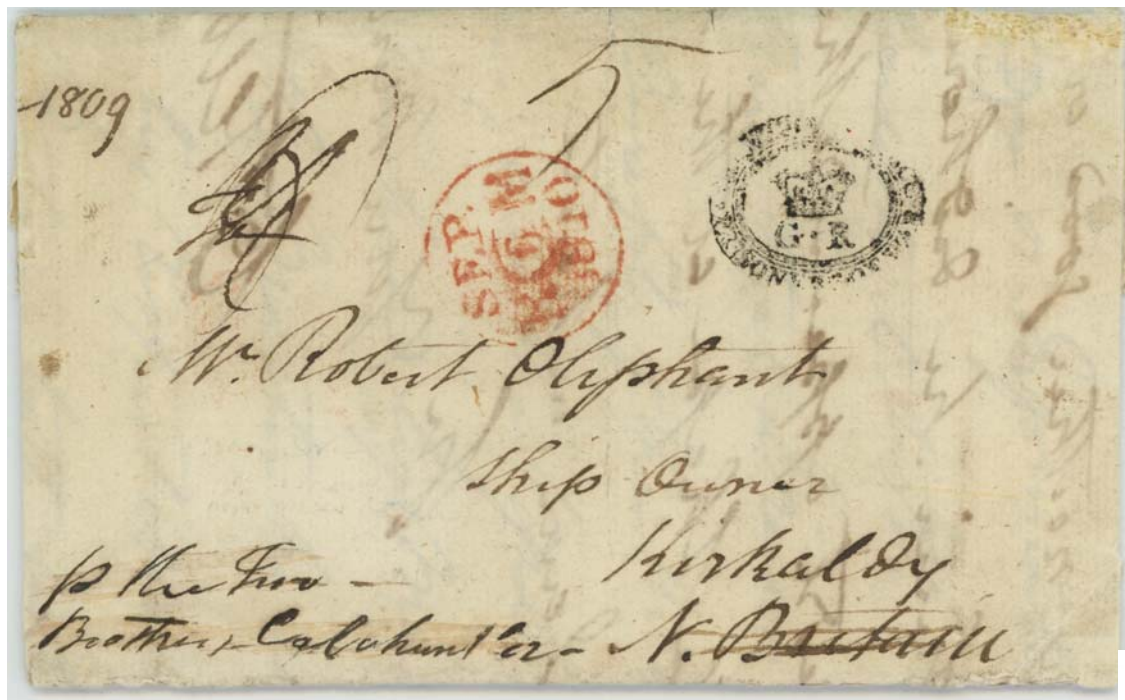 1809
SEP.
6
1810
G·R
Mr. Robert Oliphant
Ship Owner
Kirkaldy
N. Britain
p the Two -
Brothers